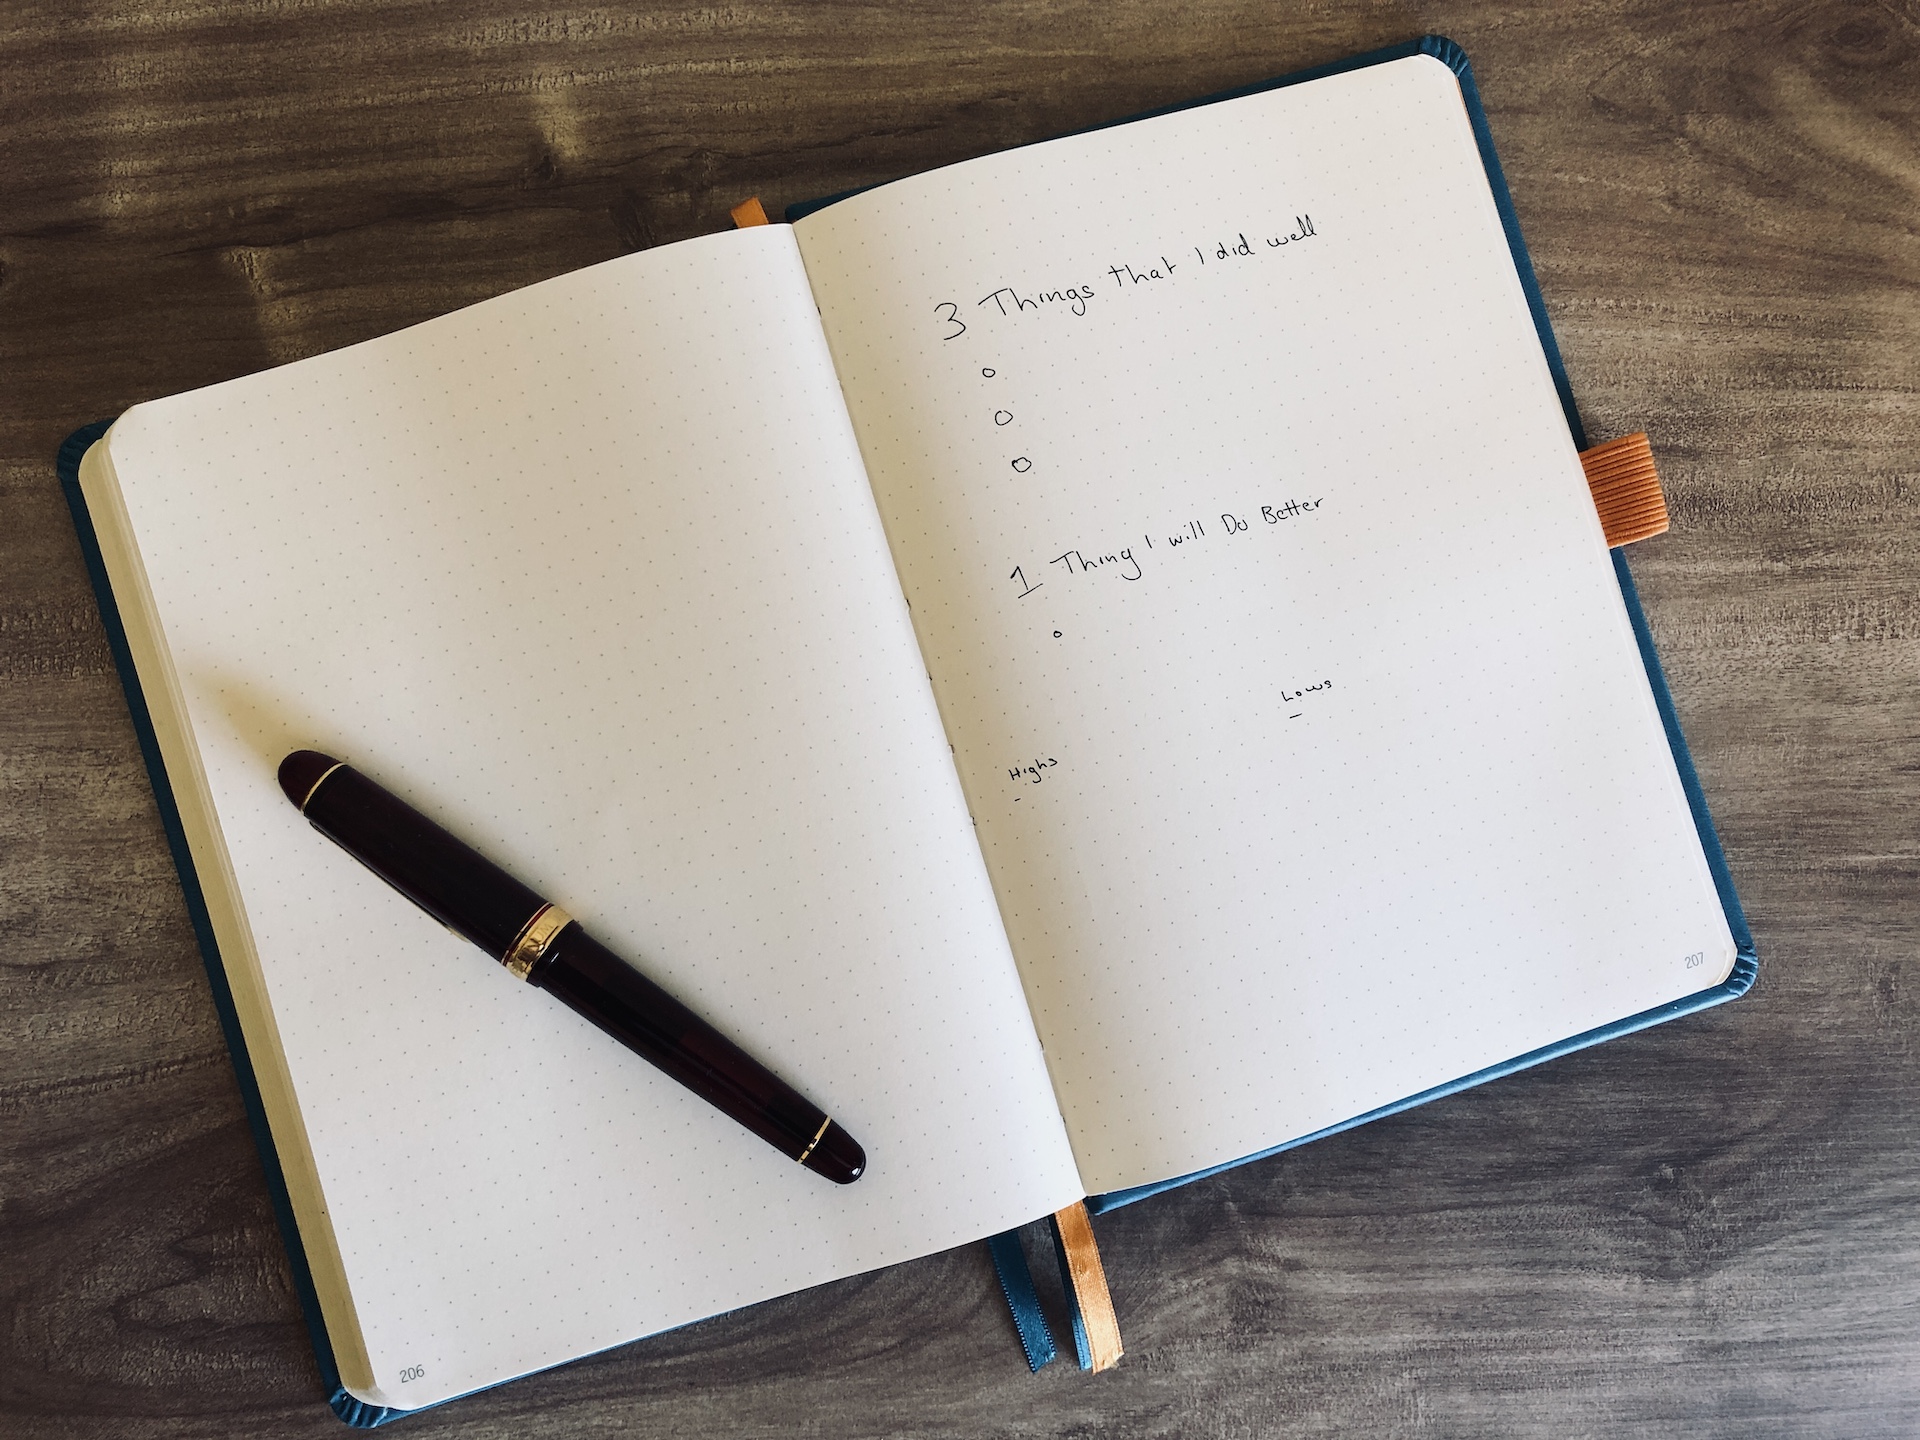 3 Things that I did well
1 Thing I will Do Better
Lows
Highs
206
207